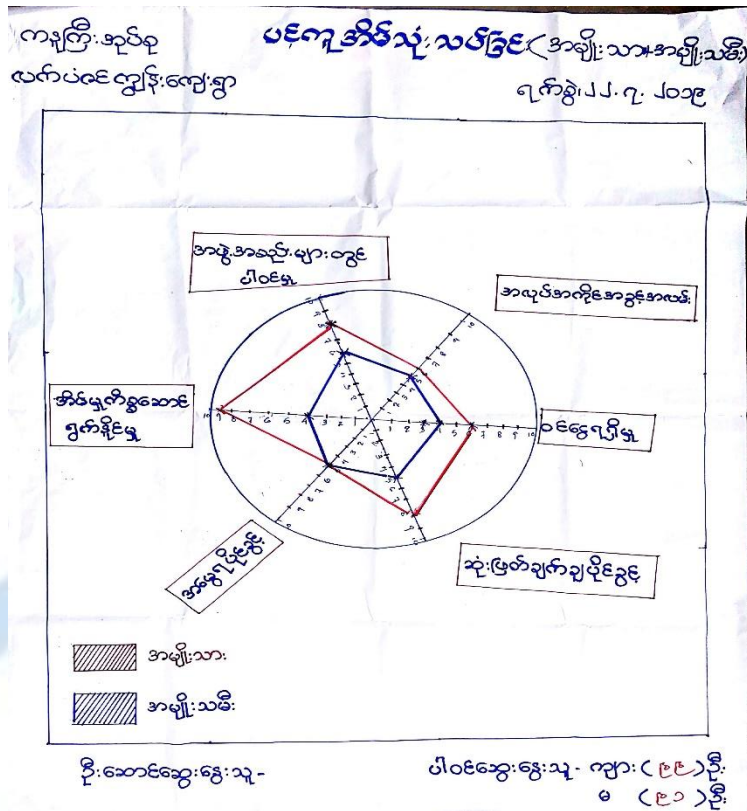 ကနုကြီးအုပ်စု
လက်ပံဇင်ကျွန်းကျေးရွာ
ပင့်ကူအိမ်သုံးသပ်ခြင်း(အမျိုးသား+အမျိုးသမီး)
ရက်စွဲ၊၂၂.၇.၂၀၁၉
အဖွဲ့အစည်းများတွင်
ပါဝင်မှု
အလုပ်အကိုင်အခွင့်အလမ်း
အိမ်မှုကိစ္စဆောင်
ရွက်နိုင်မှု
ဝင်ငွေရရှိမှု
အမွေရပိုင်ခွင့်
ဆုံးဖြတ်ချက်ချပိုင်ခွင့်
အမျိုးသား
အမျိုးသမီး
ဦးဆောင်ဆွေးနွေးသူ-
ပါဝင်ဆွေးနွေးသူ- ကျား(၉၉)ဦး
မ (၉၁)ဦး